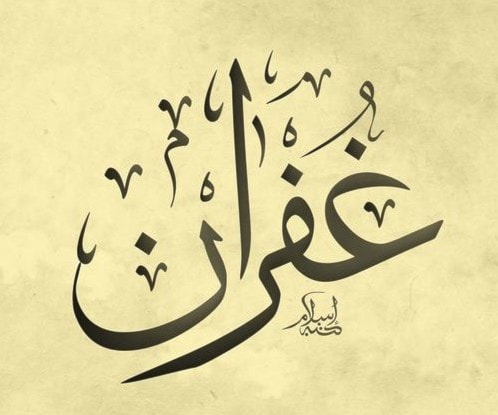 غفران
كتبه إسلام